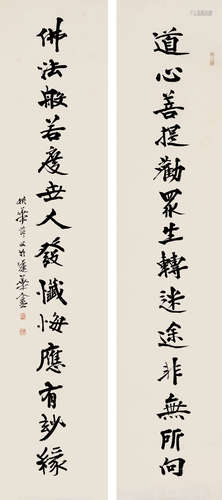 道心菩提勸眾生轉迷途非無所向
佛法般若度世人發懺悔應有妙緣